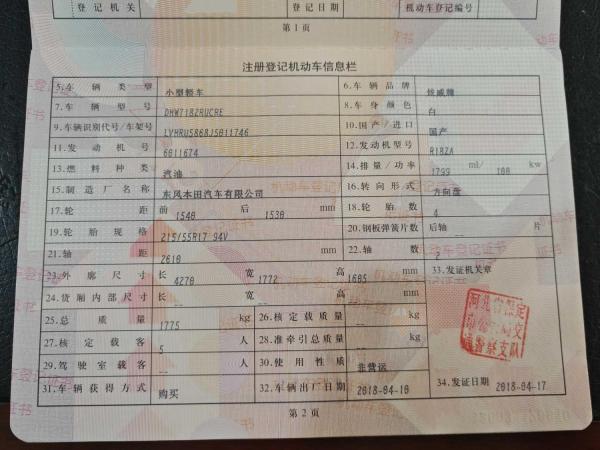 登记机关 登记日期 机动车登记编号
第1页
注册登记机动车信息栏
5.车辆类型 小型轿车 6.车辆品牌 炫威牌
7.车辆型号 DHW7182RUCRE 8.车身颜色 白
9.车辆识别代号/车架号 LVHRU5868J5011746 10.国产/进口 国产
11.发动机号 6011674 12.发动机型号 R18ZA
13.燃料种类 汽油 14.排量/功率 1799 ml/ 100 kw
15.制造厂名称 东风本田汽车有限公司 16.转向形式 方向盘
17.轮距 前 1540 后 1530 mm 18.轮胎数 4
19.轮胎规格 215/55R17 94V 20.钢板弹簧片数 后轴 -- 片
21.轴距 2610 mm 22.轴数 2
23.外廓尺寸 长 4270 宽 1772 高 1605 mm 33.发证机关章
24.货厢内部尺寸 长 -- 宽 -- 高 -- mm
25.总质量 1775 kg 26.核定载质量 -- kg
河北省保定市公安局交通警察支队
27.核定载客 5 人 28.准牵引总质量 -- kg
29.驾驶室载客 -- 人 30.使用性质 非营运
31.车辆获得方式 购买 32.车辆出厂日期 2018-04-10 34.发证日期 2018-04-17
第2页